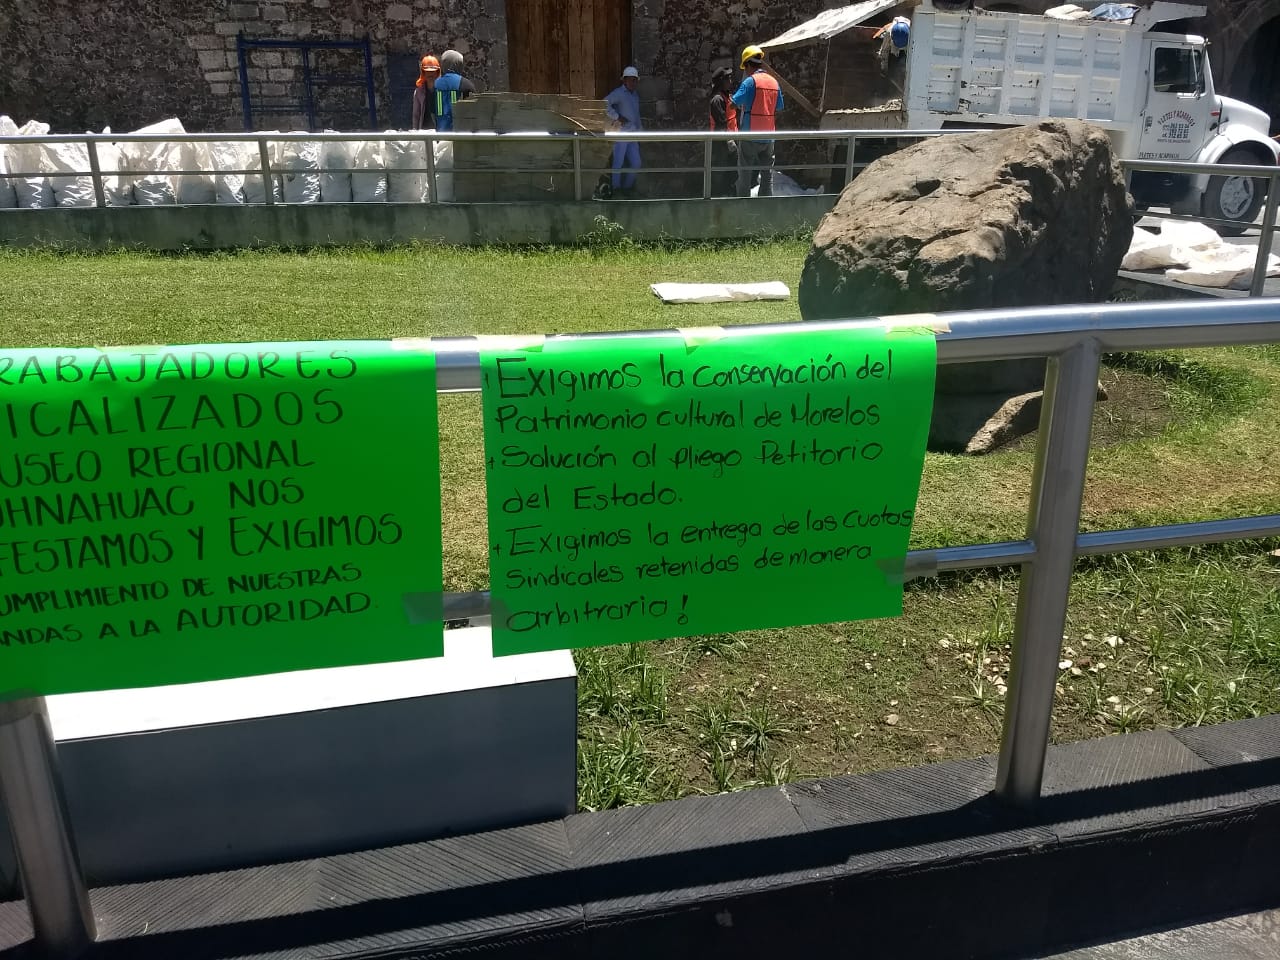 RABAJADORES
ICALIZADOS
USEO REGIONAL
OHNAHUAC NOS
FESTAMOS Y EXIGIMOS
UMPLIMIENTO DE NUESTRAS
ANDAS A LA AUTORIDAD.
Exigimos la conservación del
Patrimonio cultural de Morelos
+ Solución al pliego Petitorio
del Estado.
+ Exigimos la entrega de las Cuotas
Sindicales retenidas de manera
arbitraria!
FLETES Y ACARREOS
FLETES Y ACARREOS